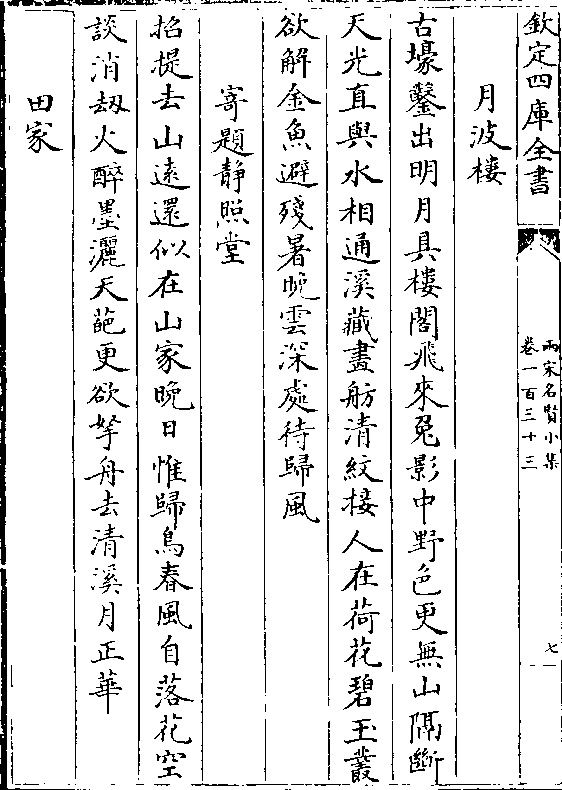 欽定四庫全書
兩宋名賢小集
卷一百三十三
七
月波樓
古壕鑿出明月具樓閣飛來兔影中野色更無山隔斷
天光直與水相通溪藏畫舫清紋接人在荷花碧玉叢
欲解金魚避殘暑晚雲深處待歸風
寄題静照堂
招提去山遠還似在山家晚日惟歸鳥春風自落花空
談消刼火醉墨灑天葩更欲拏舟去清溪月正華
田家